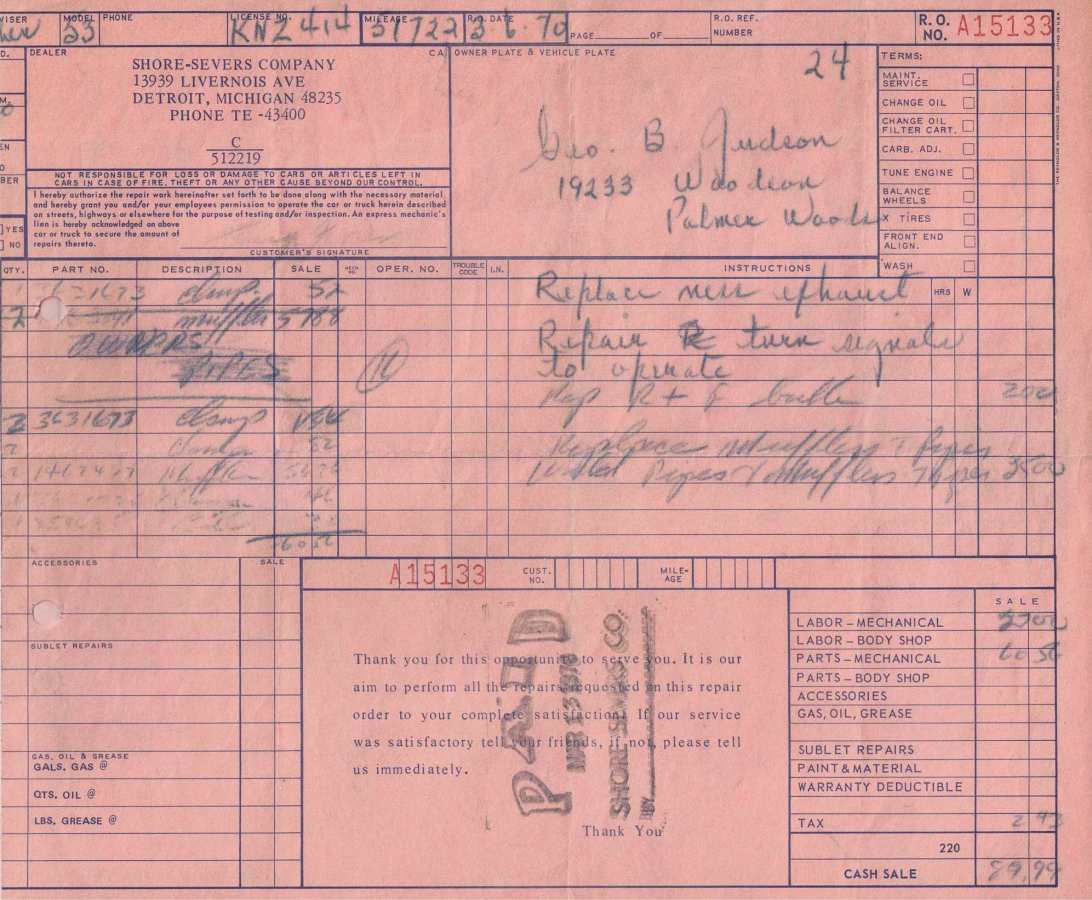 VISER MODEL 53 PHONE LICENSE NO. KNZ 414 MILEAGE 51722 R.O. DATE 3-6-70 PAGE OF R.O. REF. NUMBER R. O. NO. A15133
DEALER CA OWNER PLATE & VEHICLE PLATE 24 TERMS:
SHORE-SEVERS COMPANY
13939 LIVERNOIS AVE
DETROIT, MICHIGAN 48235
PHONE TE -43400
C
512219
Geo. B. Judson
19233 Woodson
Palmer Woods
MAINT. SERVICE
CHANGE OIL
CHANGE OIL FILTER CART.
CARB. ADJ.
TUNE ENGINE
BALANCE WHEELS
X TIRES
FRONT END ALIGN.
WASH
NOT RESPONSIBLE FOR LOSS OR DAMAGE TO CARS OR ARTICLES LEFT IN
CARS IN CASE OF FIRE, THEFT OR ANY OTHER CAUSE BEYOND OUR CONTROL.
I hereby authorize the repair work hereinafter set forth to be done along with the necessary material,
and hereby grant you and/or your employees permission to operate the car or truck herein described
on streets, highways or elsewhere for the purpose of testing and/or inspection. An express mechanic's
lien is hereby acknowledged on above
car or truck to secure the amount of
repairs thereto.
YES
NO
CUSTOMER'S SIGNATURE
QTY. PART NO. DESCRIPTION SALE OPER. NO. TROUBLE CODE I.N. INSTRUCTIONS HRS W
1673 clamp 52 Replace exhaust
2 muffler 5788
Repair turn signals
PIPES to operate
Rep R + F 200
2 3631673 clamp
clamp 52 Mufflers + Pipes
2 Pipes + Mufflers 2500
ACCESSORIES SALE
A15133 CUST. NO. MILE-AGE
SALE
LABOR – MECHANICAL 2700
LABOR – BODY SHOP
PARTS – MECHANICAL 60 56
PARTS – BODY SHOP
ACCESSORIES
GAS, OIL, GREASE
SUBLET REPAIRS
PAINT & MATERIAL
WARRANTY DEDUCTIBLE
TAX 2 43
220
CASH SALE 89,99
SUBLET REPAIRS
GAS, OIL & GREASE
GALS. GAS @
QTS. OIL @
LBS. GREASE @
Thank you for this opportunity to serve you. It is our
aim to perform all the repairs requested on this repair
order to your complete satisfaction. If our service
was satisfactory tell your friends, if not, please tell
us immediately.
Thank You
PAID
MAR 13 1970
SHORE SEVERS CO.
BY